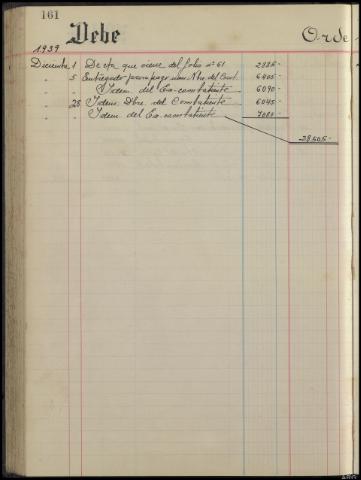 161
Debe
Orde
1939
Diciembre 1 De cta que viene del folio nº 61 2885-
" 5 Entregado para pago nom. Nbre del Cont. 6405-
" " Idem del Ex-combatiente 6090-
" 28 Idem Dbre. del Combatiente 6045-
" " Idem del Ex-combatiente 7080-
28505-